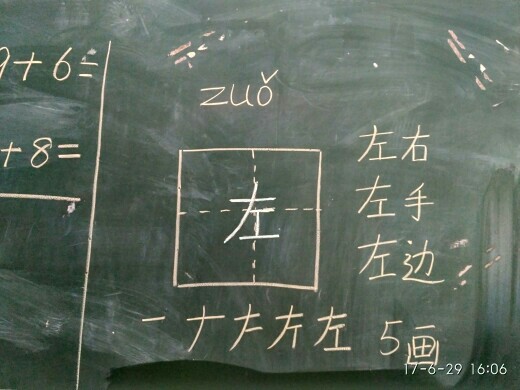 9+6=
+8=
zuǒ
左
左右
左手
左边
一ナ左 5画
17-6-29 16:06